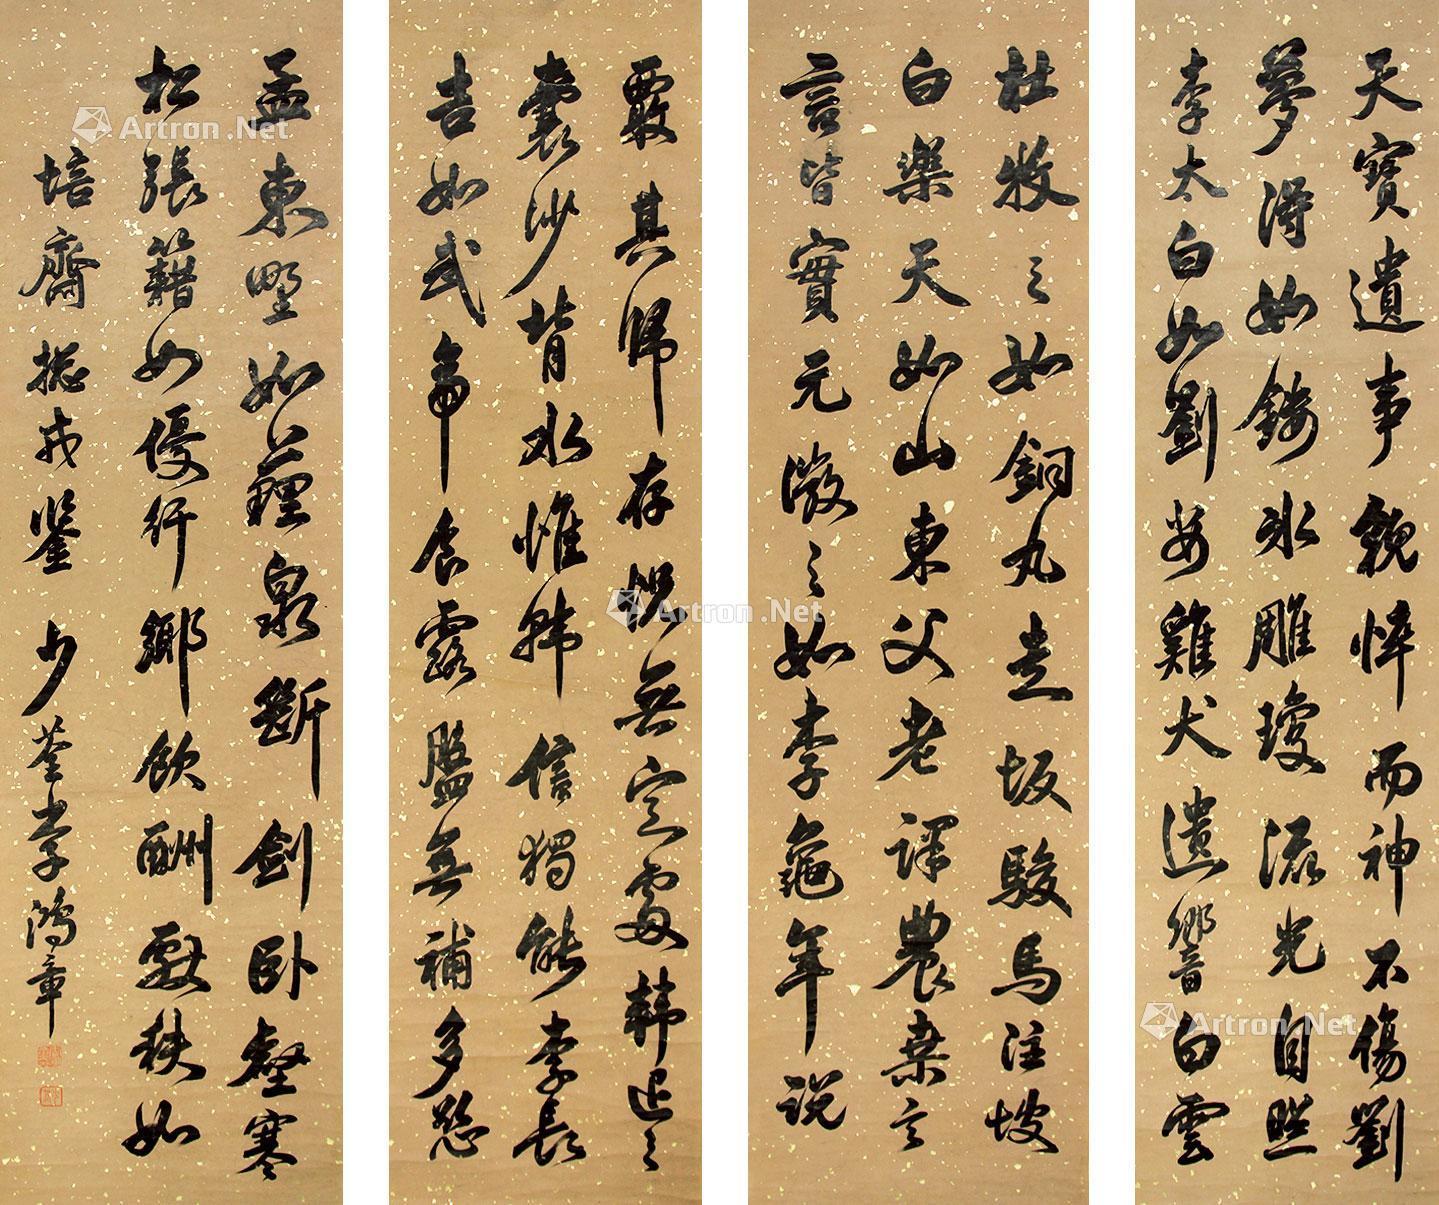 天寶遺事貌悴而神不傷劉
夢得如鏤冰雕瓊流光自照
李太白如劉安雞犬遺響白雲
杜牧之如銅丸走坂駿馬注坡
白樂天如山東父老課農桑言
言皆實元微之如李龜年説
覈其歸存怳無定處韓退之
囊沙背水惟韓信獨能李長
吉如武帝食露盤無補多慾
孟東野如薶泉斷劍卧壑寒
松張籍如優行鄉飲酬獻秩如
培齋總戎鑒 少荃李鴻章
Artron.Net
Artron.Net
Artron.Net